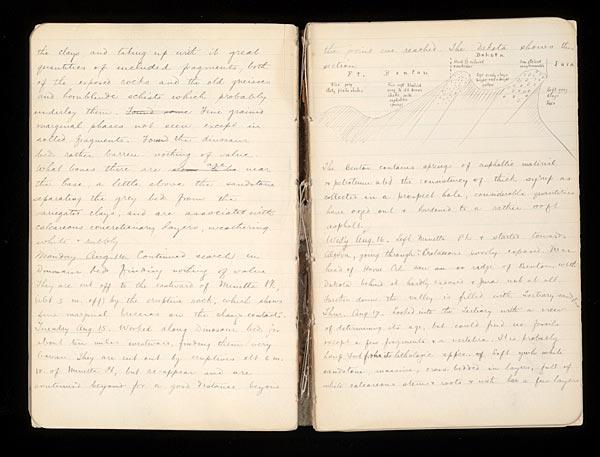 the clays and taking up with it great
quantities of included fragments, both
of the exposed rocks and the old gneisses
and hornblende schists which probably
underlay them. Found some Fine grained
marginal phases not seen except in
fragments. Found the dinosaur
bed rather barren nothing of value.
What bones there are near
the base, a little above the sandstone
separating the grey bed from the
variegated clays, and are associated with
calcareous concretionary layers, weathering
white &
Monday Aug. 14. Continued search in
Dinosaur bed finding nothing of value
They are cut off to the eastward of Minette Pk,
abt 3 m. off) by the eruptive rock, which shows
fine marginal breccias on the clays contact.
Tuesday Aug. 15. Worked along Dinosaur bed for
about ten miles westward, finding them very
barren. They are cut out by eruptives abt 6 m.
w. of Minette Pk, but re-appear and are
continued beyond for a good distance beyond
the point we reached. The Dakota shows this
section
Dakota
Ft. Benton
Jura
Soft grey clays
The Benton contains springs of asphaltic material
& petroleum abt the consistency of thick syrup as
collected in a prospect hole, considerable quantities
have oozed out & hardened to a rather soft
asphalt.
Wed'y Aug. 16. Left Minette Pk. & started towards
going through Cretaceous poorly exposed. Near
head of Horse Ck. saw an ridge of Benton, with
Dakota behind it hardly exposed & Jura not at all.
Further down the valley is filled with Tertiary
Thur. Aug 17. Looked into the Tertiary with a view
of determining its age, but could find no fossils
except a few fragments & a vertebra. It is probably
from its lithologic appce. of soft white
sandstone, massive, cross bedded in layers, full of
white calcareous stems & roots & with but a few layers